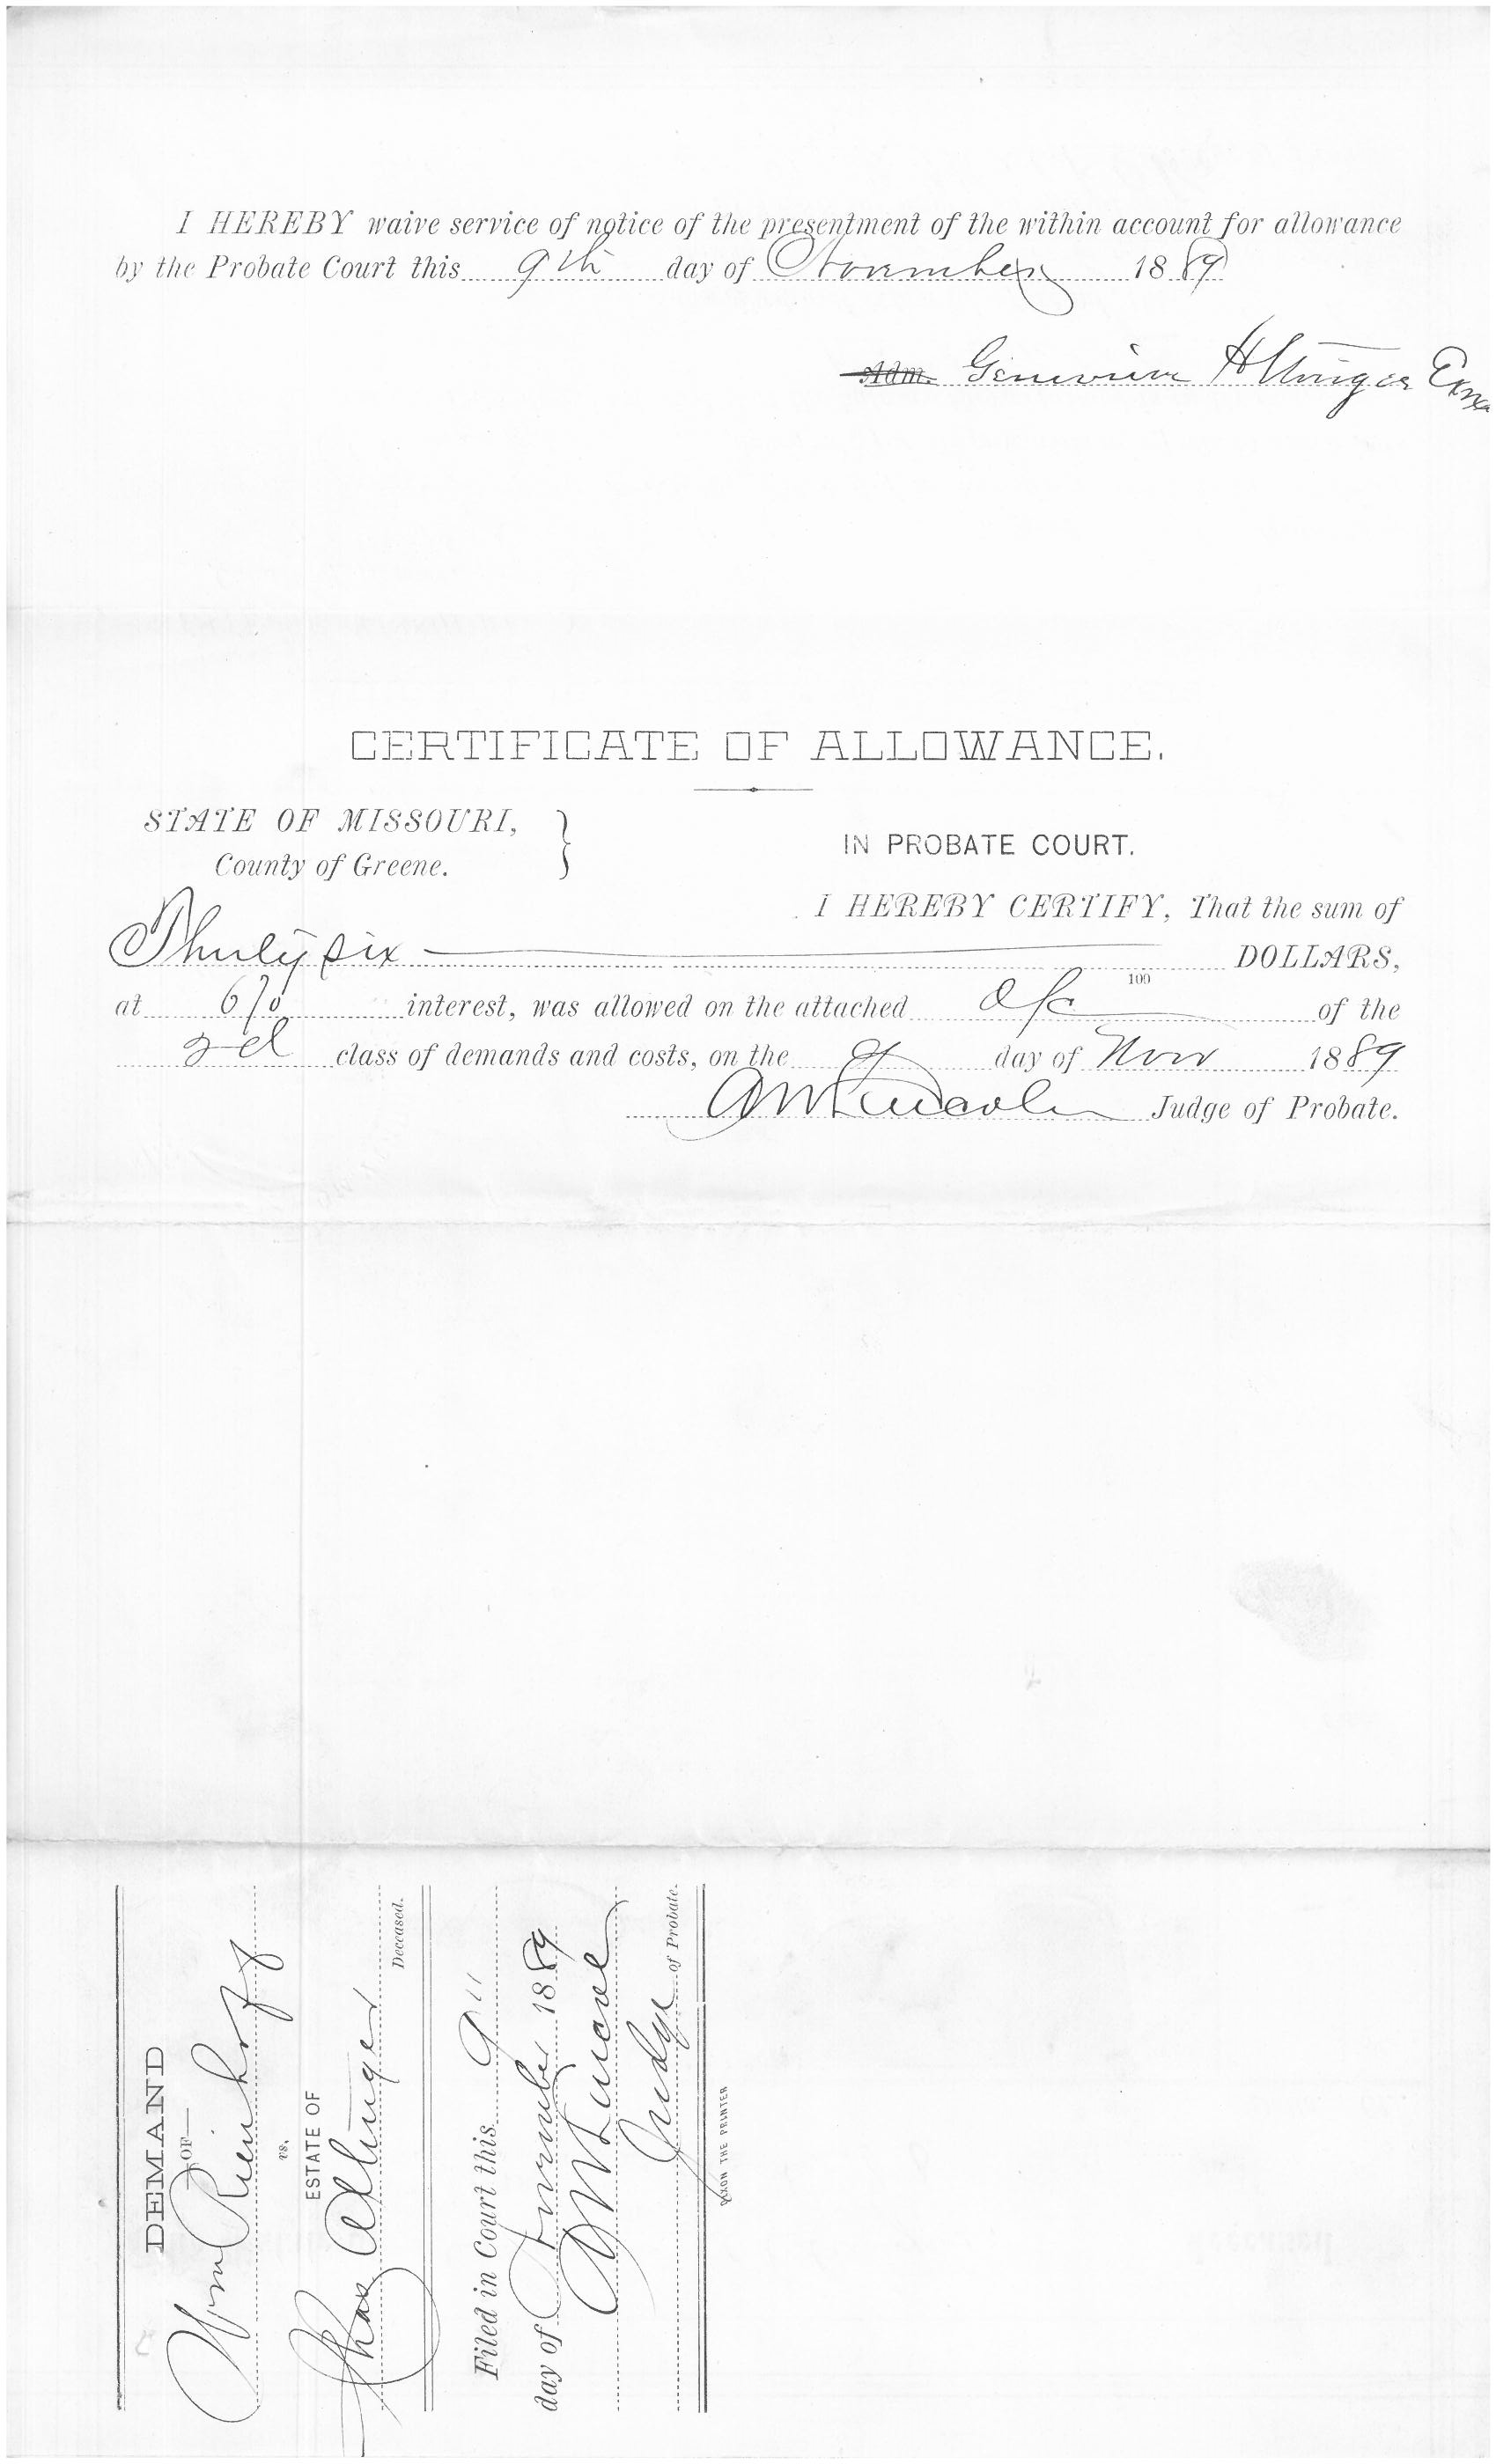 I HEREBY waive service of notice of the presentment of the within account for allowance
by the Probate Court this 9th day of November 1889
Adm. Genevieve Altinger Exrx
CERTIFICATE OF ALLOWANCE.
STATE OF MISSOURI,
County of Greene.
IN PROBATE COURT.
I HEREBY CERTIFY, That the sum of
Thirty six DOLLARS,
100
at 6% interest, was allowed on the attached a/c of the
2d class of demands and costs, on the 9 day of Nov 1889
Judge of Probate.
DEMAND
—OF—
Wm Rienhoff
vs.
ESTATE OF
Chas Altinger
Deceased.
Filed in Court this 9"
day of November 1889
Judge of Probate.
DIXON THE PRINTER